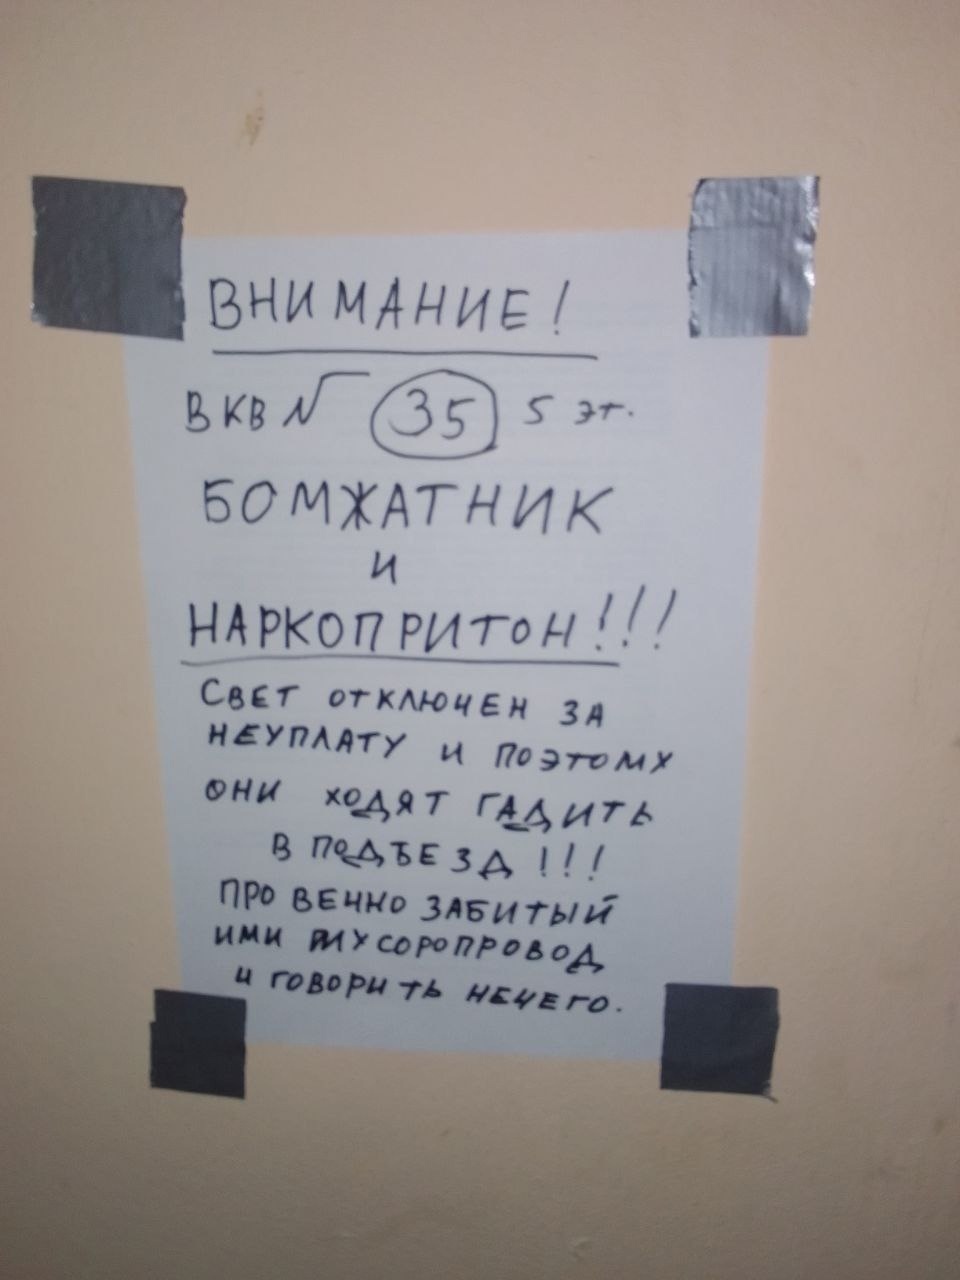 ВНИМАНИЕ!
В КВ № 35 5 эт.
БОМЖАТНИК
И
НАРКОПРИТОН!!!
СВЕТ ОТКЛЮЧЕН ЗА
НЕУПЛАТУ И ПОЭТОМУ
ОНИ ХОДЯТ ГАДИТЬ
В ПОДЪЕЗД!!!
ПРО ВЕЧНО ЗАБИТЫЙ
ИМИ МУСОРОПРОВОД
И ГОВОРИТЬ НЕЧЕГО.